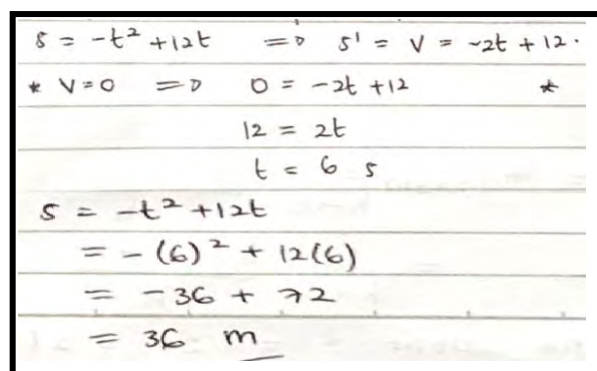 s = -t² + 12t => s' = v = -2t + 12.
* v = 0 => 0 = -2t + 12 *
12 = 2t
t = 6 s
s = -t² + 12t
= -(6)² + 12(6)
= -36 + 72
= 36 m